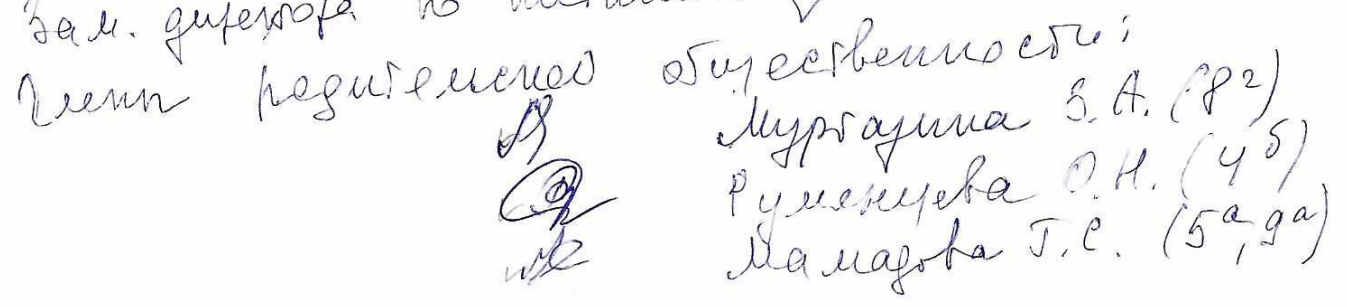 Зам. директора по
Члены родительской общественности:
Муртазина З.А. (8г)
Румянцева О.Н. (4б)
Мамадова Т.С. (5а, 9а)